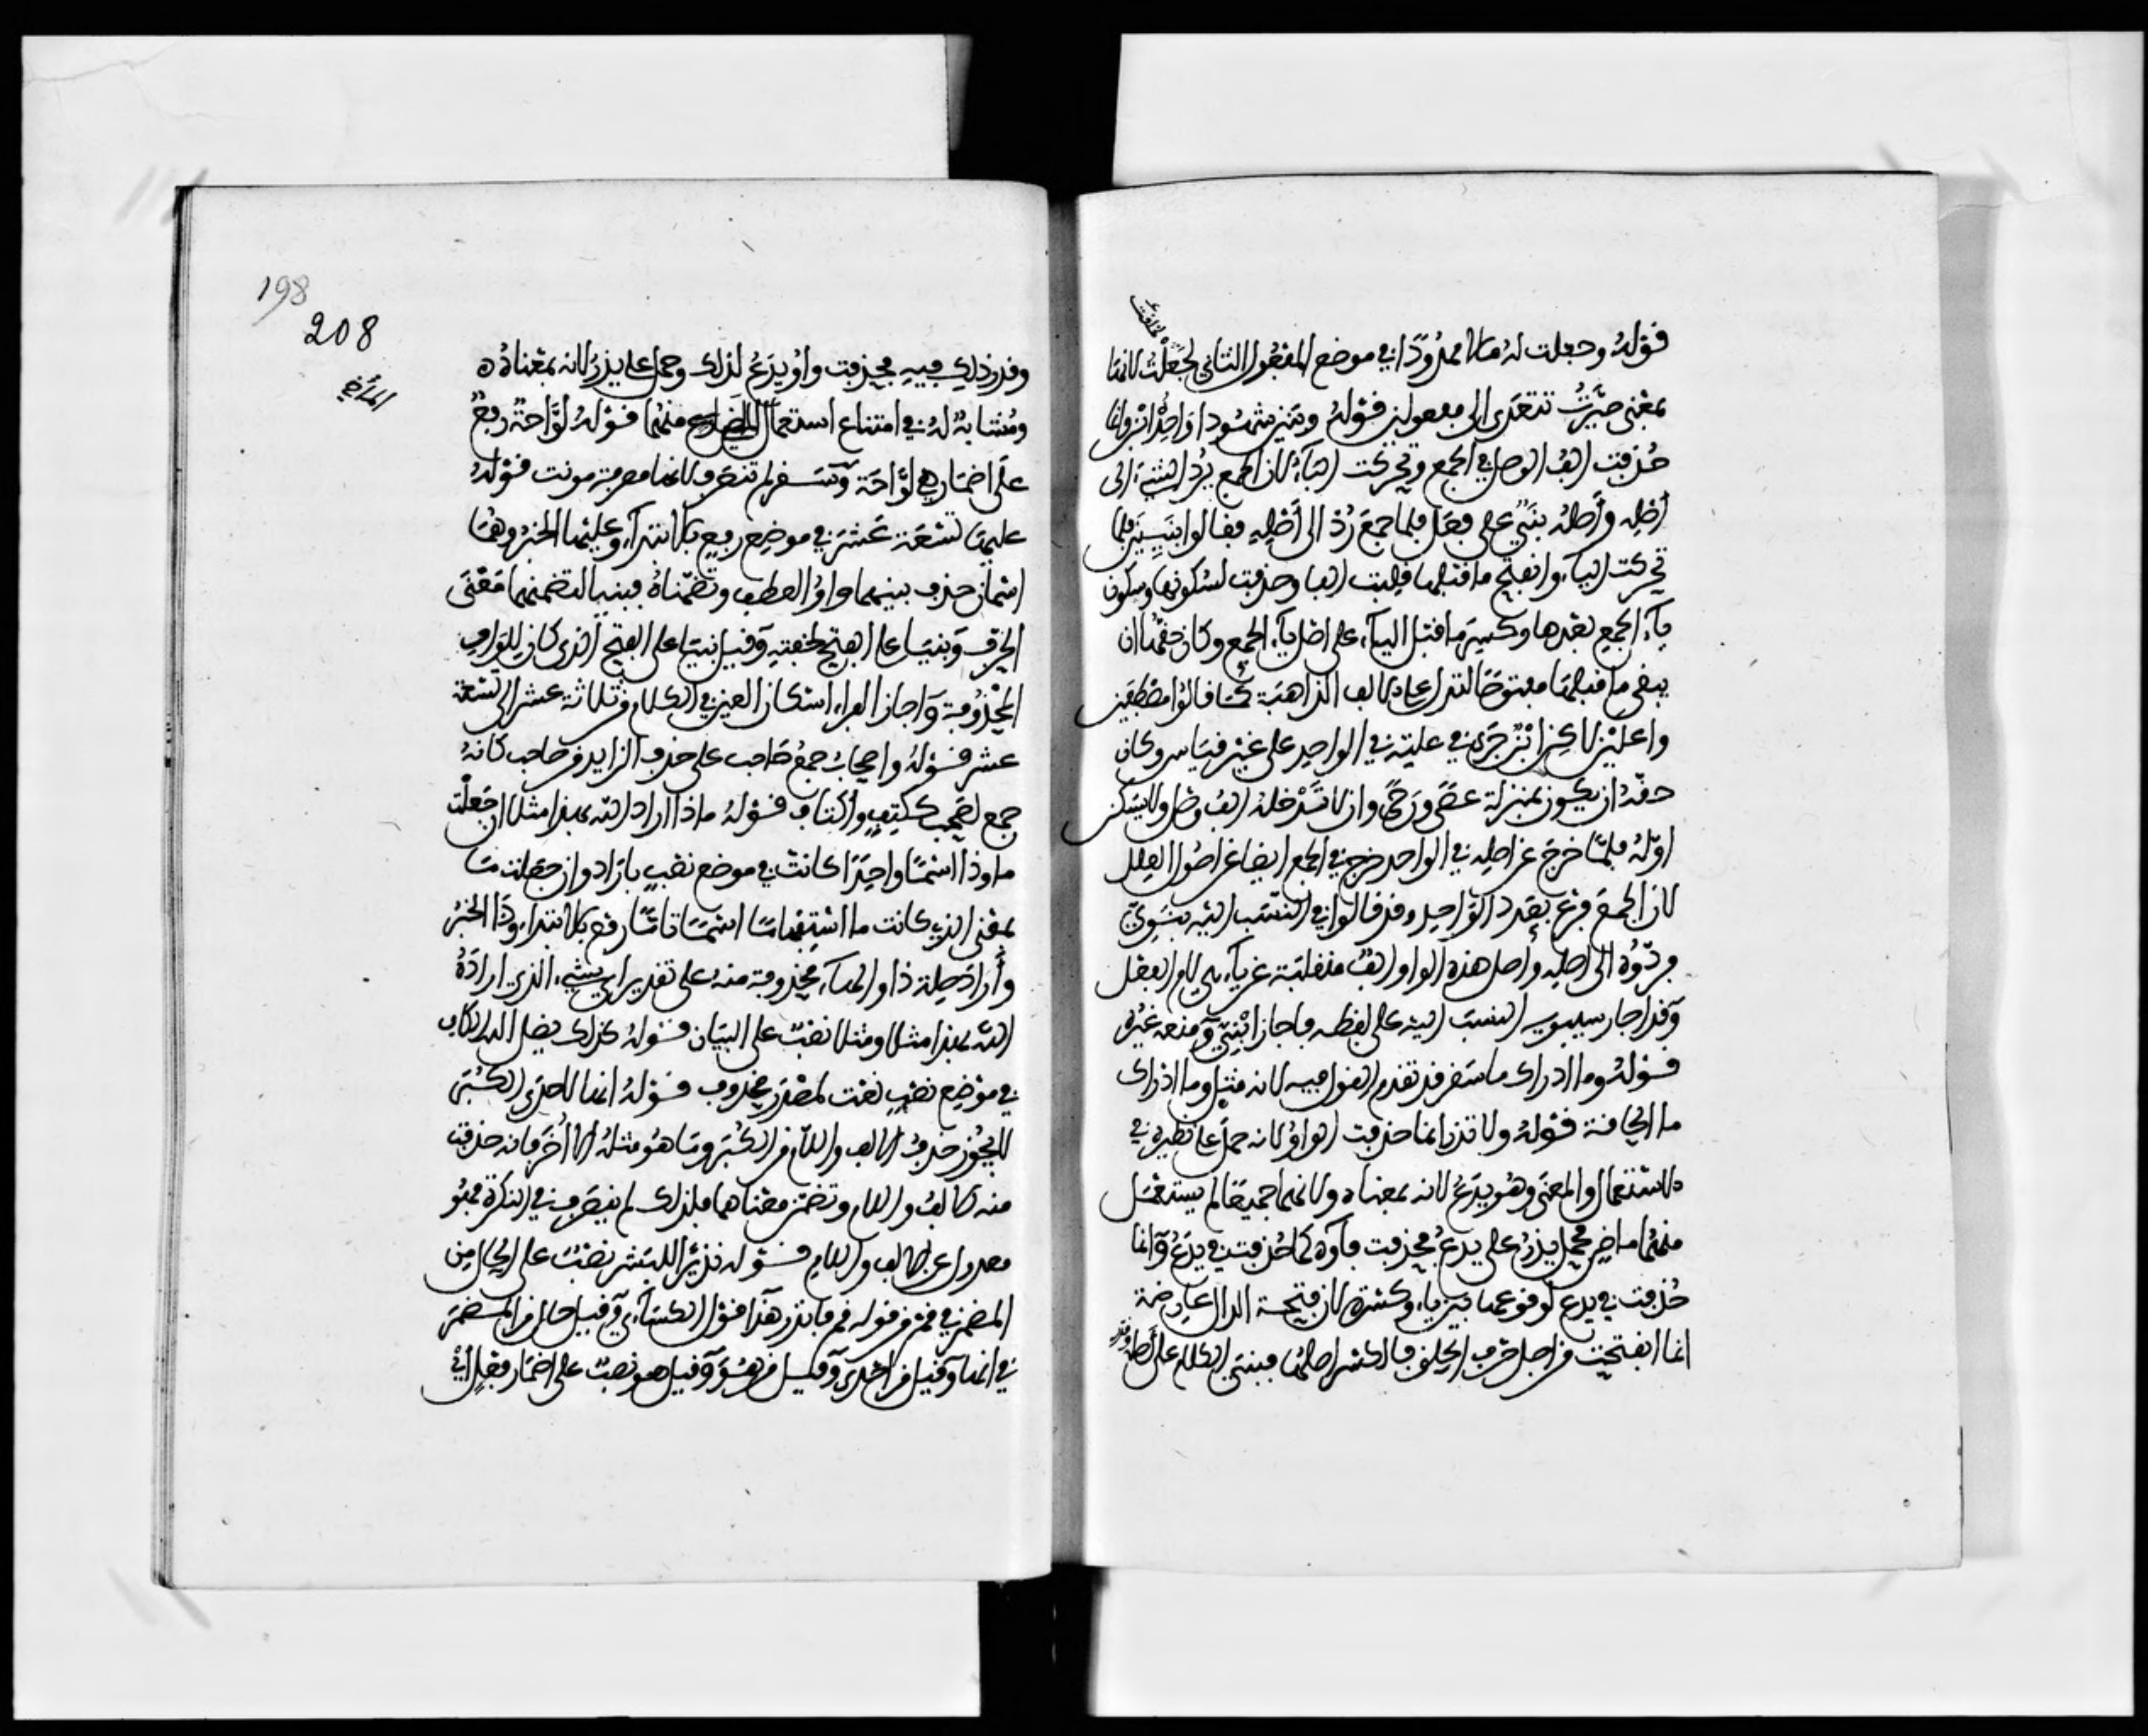 قوله وجعلت له مالا ممدودا في موضع المفعول الثاني لجعلت لانها
بمعنى صيرت تتعدى الى مفعولين قوله وبنين شهودا واحد ابن وانما
حذفت الف الوصل في الجمع وتحركت الباء لان الجمع يرد الشيء الى
أصله وأصله بني على فعل فلما جمع رد الى أصله فقالوا بنيين فلما
تحركت الياء وانفتح ما قبلها قلبت الفا وحذفت لسكونها وسكون
ياء الجمع بعدها وكسر ما قبل الياء على اصل ياء الجمع وكان حقها ان
يبقى ما قبلها مفتوحا لتدل على الالف الذاهبة كما قالوا مصطفين
واعلين لاكن ابن جرى في علته في الواحد على غير قياس وكان
حقه ان يكون بمنزلة عصى ورحى وان لا تدخله الف وصل ولا يسكن
اوله فلما خرج عن اصله في الواحد خرج في الجمع ايضا عن اصول العلل
لان الجمع فرع بعد الواحد وقد قالوا في النسب اليه بنوي
فردوه الى اصله واصل هذه الواو الف منقلبة عن ياء هي لام الفعل
وقد اجاز سيبويه النسب اليه على لفظه فاجاز ابني ومنعه غيره
قوله وما ادراك ما سقر قد تقدم القول فيه لانه مثل وما ادراك
ما الحاقة قوله ولا تذر انما حذفت الواو لانه حمل على نظيره في
الاستعمال والمعنى وهو يدع لانه بمعناه ولانهما جميعا لم يستعمل
منهما ماض فحمل يذر على يدع فحذفت فاؤه كما حذفت في يدع وانما
حذفت في يدع لوقوعها بين ياء وكسرة لان فتحة الدال عارضة
انما انفتحت من اجل حرف الحلق والكسر اصلها فبنى الكلام على أصله
198
208
وقدر ذلك فيه فحذفت واو يدع لذلك وحمل على يذر لانه بمعناه
ومشابه له في امتناع استعمال الماضي منهما قوله لواحة رفع
على اضمار هي لواحة وسقر لم تنصرف لانها معرفة مونث قوله
عليها تسعة عشر في موضع رفع بالابتداء وعليها الخبر وهما
اسمان حذف بينهما واو العطف وتضمناه فبنيا لتضمنهما معنى
الحرف وبنيا على الفتح لخفته وقيل بنيا على الفتح الذي كان للواو
المحذوفة واجاز الفراء اسكان العين في الكلام من ثلاثة عشر الى تسعة
عشر قوله واصحاب جمع صاحب على حذف الزايد من صاحب كانه
جمع لصحب ككتف واكتاف قوله ماذا اراد الله بهذا مثلا ان جعلت
ما وذا اسما واحدا كانت في موضع نصب باراد وان جعلت ما
بمعنى الذي كانت ما استفهاما اسما تاما رفع بالابتداء وذا الخبر
وأراد صلة ذا والهاء محذوفة منه على تقدير اي شيء الذي اراده
الله بهذا مثلا ومثلا نصب على البيان قوله كذلك يضل الله الكاف
في موضع نصب نعت لمصدر محذوف قوله انها لاحدى الكبر
لا يجوز حذف الالف واللام من الكبر وما هو مثله الا أخر فانه حذفت
منه الالف واللام وتضمن معناهما فلذلك لم ينصرف في النكرة فهو
معدول عن الالف واللام قوله نذيرا للبشر نصب على الحال من
المضمر في قم من قوله قم فانذر هذا قول الكسائي وقيل حال من المضمر
في انها وقيل من احدى وقيل من هو وقيل هو نصب على اضمار فعل اي